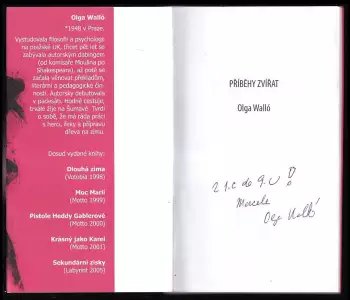 Olga Walló
*1948 v Praze.
Vystudovala filosofii a psychologii
na pražské UK, třicet pět let se
zabývala autorským dabingem
(od komisaře Moulina po
Shakespeara), až poté se
začala věnovat překladům,
literární a pedagogické čin-
nosti. Autorsky debutovala
v padesáti. Hodně cestuje,
trvale žije na Šumavě. Tvrdí
o sobě, že má ráda práci
s herci, řeky a přípravu
dřeva na zimu.
Dosud vydané knihy:
Dlouhá zima
(Votobia 1998)
Moc Marií
(Motto 1999)
Pistole Heddy Gablerové
(Motto 2000)
Krásný jako Karel
(Motto 2001)
Sekundární zisky
(Labyrint 2005)
PŘÍBĚHY ZVÍŘAT
Olga Walló
Marcele
Olga Walló